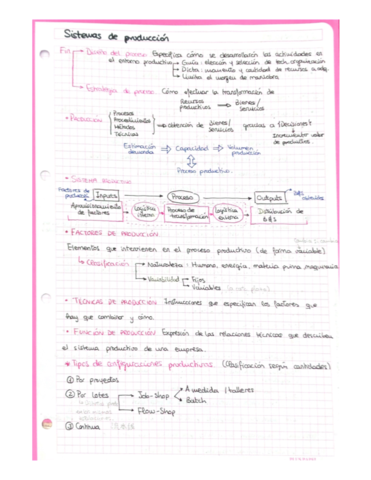 Sistemas de producción
Diseño del proceso: Especifica cómo se desarrollarán las actividades en
el entorno productivo → Guía: elección y selección de tech, organización
Dicta: aumento y cantidad de recursos a adq.
Limita el margen de maniobra
Estrategia de proceso: Cómo efectuar la transformación de
Recursos productivos → bienes/servicios
• PRODUCCIÓN
Procesos
Procedimientos
Métodos
Técnicas
→ obtención de bienes/servicios gracias a ¡Decisiones!
Incrementar valor
de productos.
Estimación demanda → Capacidad → Volumen producción
Proceso productivo.
• SISTEMA PRODUCTIVO
Factores de producción → Inputs → Proceso → Outputs →
Aprovisionamiento de factores → Logística interna → Proceso de transformación → Logística externa → Distribución de
• FACTORES DE PRODUCCIÓN
Elementos que intervienen en el proceso productivo (de forma variable)
↳ Clasificación → Naturaleza: Humano, energía, materia prima, maquinaria
→ Variabilidad → Fijos
→ Variables
• TÉCNICAS DE PRODUCCIÓN: Instrucciones que especifican los factores que
hay que combinar y cómo.
• FUNCIÓN DE PRODUCCIÓN: Expresión de las relaciones técnicas que describen
el sistema productivo de una empresa.
* Tipos de configuraciones productivas. (Clasificación según cantidades)
① Por proyectos
② Por lotes → Job-Shop → A medida / talleres
→ Batch
→ Flow-Shop
③ Continua